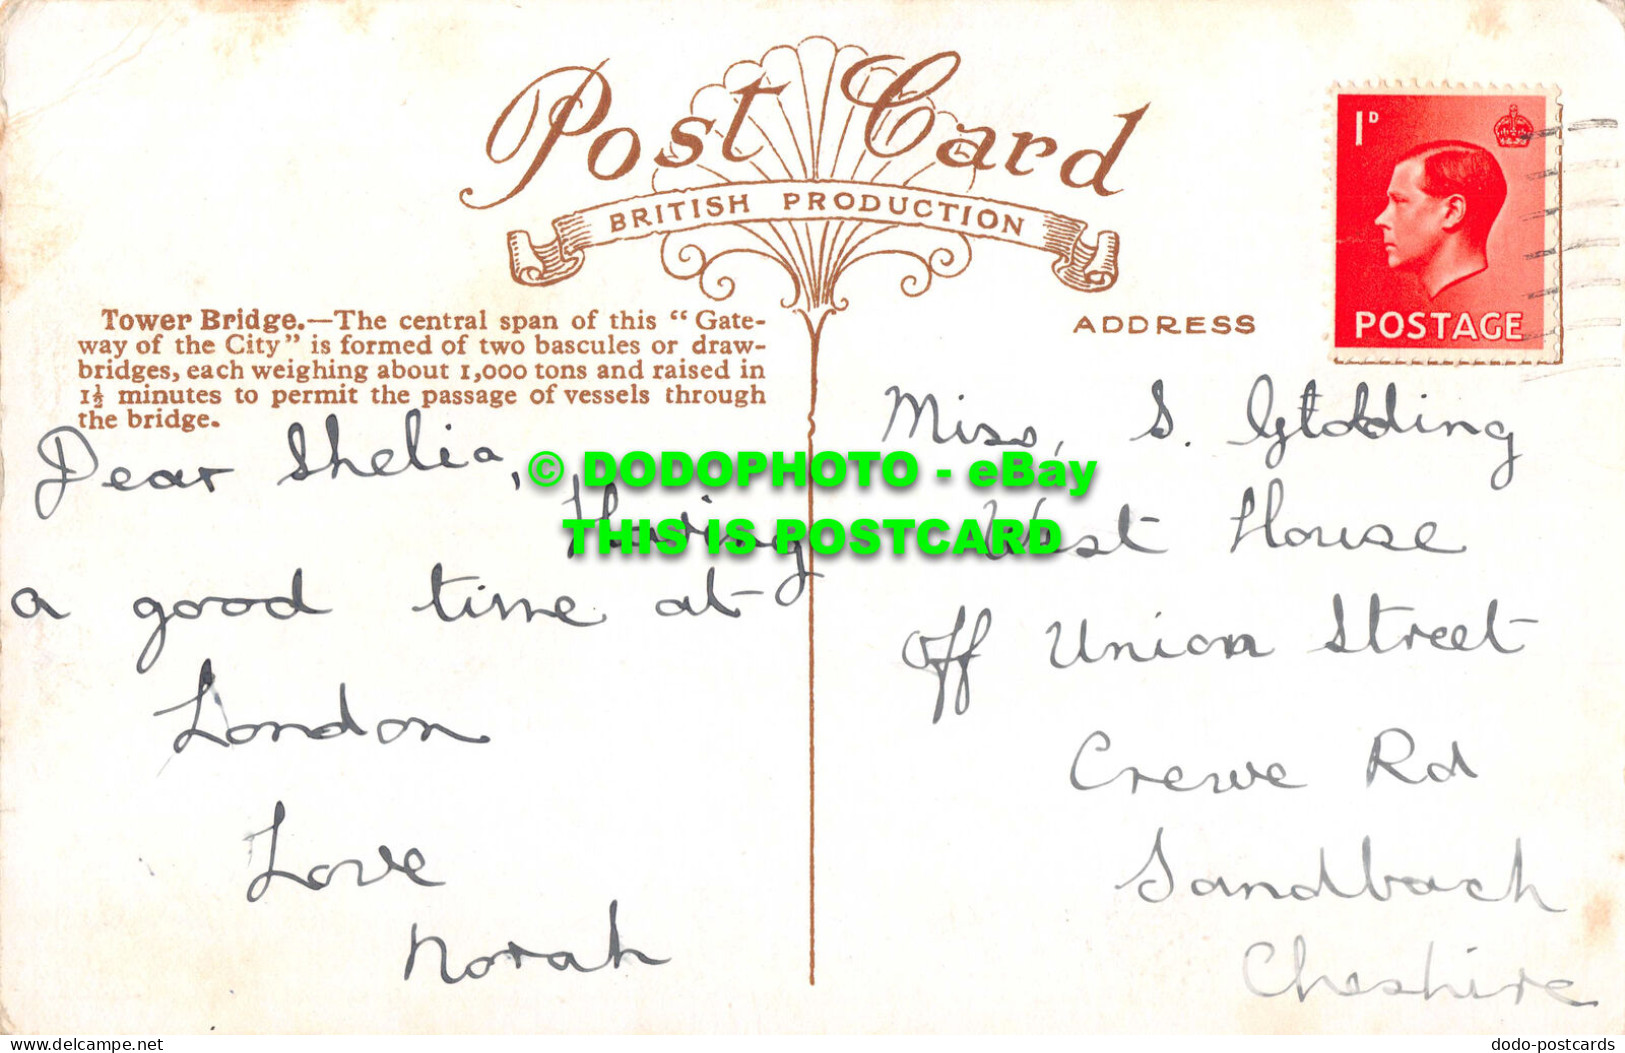 Post Card
BRITISH PRODUCTION
1D
POSTAGE
Tower Bridge.—The central span of this "Gate-
way of the City" is formed of two bascules or draw-
bridges, each weighing about 1,000 tons and raised in
1½ minutes to permit the passage of vessels through
the bridge.
ADDRESS
Dear Shelia,
Having
a good time at
London
Love
Norah
Miss, S.
West House
off Union Street
Crewe Rd
Sandbach
Cheshire
© DODOPHOTO - eBay
THIS IS POSTCARD
www.delcampe.net
dodo-postcards